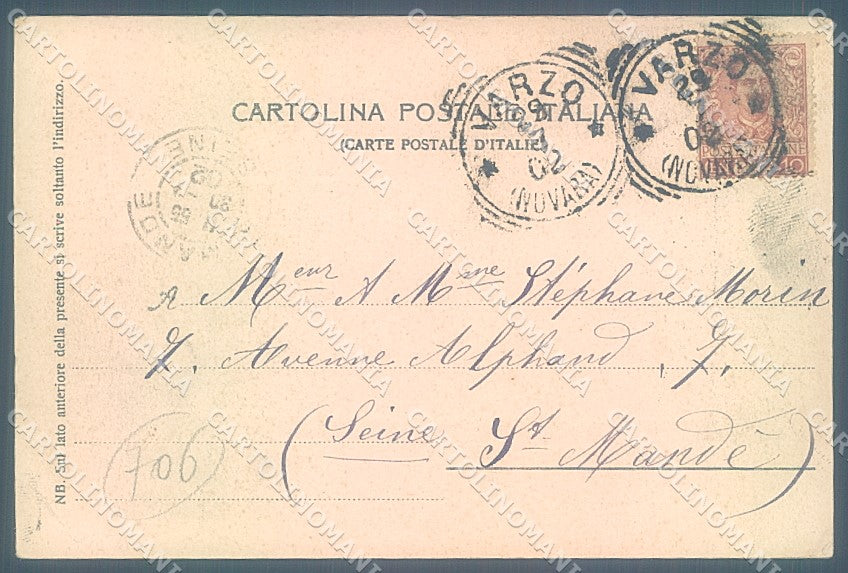 CARTOLINA POSTALE ITALIANA
(CARTE POSTALE D'ITALIE)
VARZO
02
(NOVARA)
VARZO
29
02
(NOVARA)
POSTE ITALIANE
NB. Sul lato anteriore della presente si scrive soltanto l'indirizzo.
A Meur A Mme Stéphane Morin
7, Avenue Alphand, 7,
(Seine St Mandé)
706
CARTOLINOMANIA